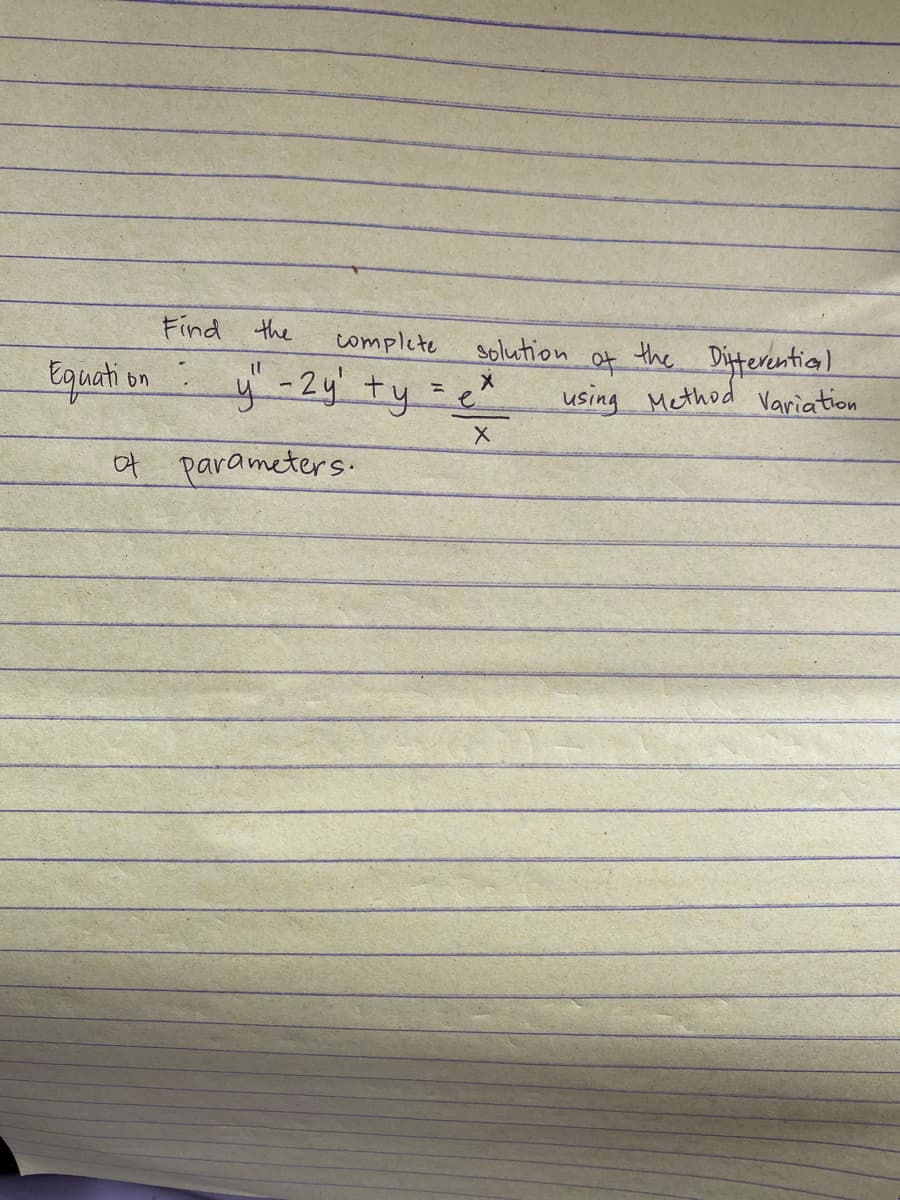 Find the complete solution of the Differential
Equation : y" - 2y' + y = e^x / x using Method Variation
of parameters.